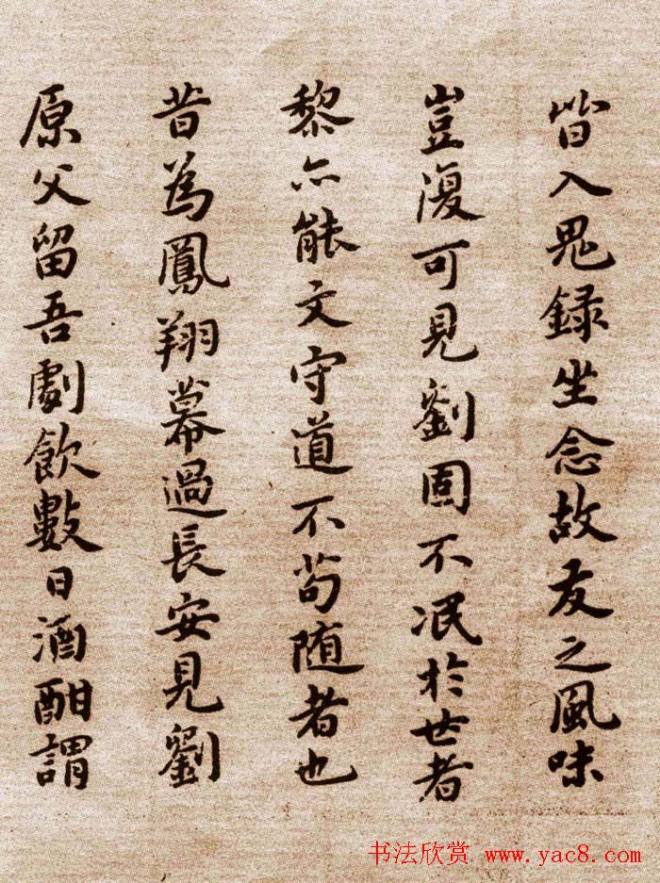 皆入鬼録坐念故友之風味
豈復可見劉固不泯於世者
黎亦能文守道不苟随者也
昔為鳳翔幕過長安見劉
原父留吾劇飲數日酒酣謂
书法欣赏 www.yac8.com